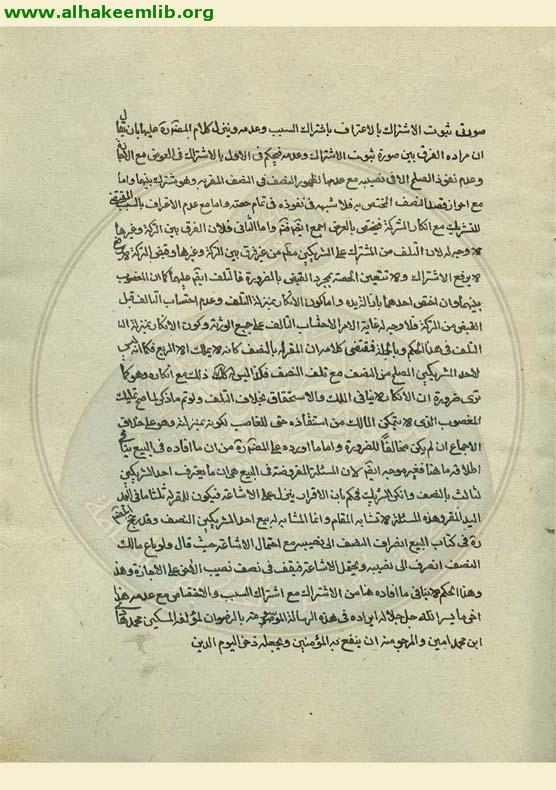 www.alhakeemlib.org
صورتى ثبوت الاشتراك بالاعتراف باشتراك السبب وعدمه وينزل كلام المصـ عليها بان يقال
ان مراده الفرق بين صورة ثبوت الاشتراك وعدمه فيحكم فى الاول بالاشتراك فى العوض مع
وعدم نفوذ الصلح الا فى نصيبه مع عدمها لظهور النصف فى النصف المقر به وهو مشترك بينهما واما
مع النصف المختص به فلا شبهة فى نفوذه فى تمام حصته واما مع عدم الاعتراف بالسبب المقتضى
للتشريك مع انكار الشركة فيختص بالعوض اجمع واما الثانى فلان الفرق بين التركة وغيرها
لا وجه له لان التلف من المشترك على الشريكين من غير فرق بين التركة وغيرها وقبض التركة لا
يرفع الاشتراك ولا تتعين الحصة بمجرد القبض بالضرورة فالتلف عليهما كما ان المغصوب
بينهما وان اختص احدهما واما كون الانكار بمنزلة التلف وعدم احتساب التالف قبل
القبض من التركة فلا وجه له غاية الامر احتساب التالف على جميع الورثة وكون الانكار بمنزلة
التلف فى هذا الحكم وبالجملة فمقتضى كلامه ان المقر له بالنصف كانه لا يملك الا الربع فكما انه ليس
لاحد الشريكين الصلح من النصف مع تلف النصف فكذا ليس له ذلك مع انكاره وهو كما
ترى ضرورة ان الانكار لا ينافى الملك والاستحقاق بخلاف التلف ولو تم ما ذكر لما صح تمليك
المغصوب الذى لا يتمكن المالك من استنقاذه حتى للغاصب لكونه بمنزلته وهو على خلاف
الاجماع ان لم يكن مخالفاً للضرورة واما ما اورده على من ان ما افاده فى البيع ينافى
اطلاقه هنا فغير موجه لان المسئلة المفروضة فى البيع هى ان ما يعترف احد الشريكين
لثالث بالنصف وانكر الشريك فحكم بان الاقرار ينزل على الاشاعة فيكون للمقر له ثلثا ما فى
اليد المقر وهذه المسئلة لا تشابه المقام وانما المشابه له بيع احد الشريكين النصف وقد رجح
فى كتاب البيع انصراف النصف الى نصيبه مع احتمال الاشاعة حيث قال ولو باع مالك
النصف انصرف الى نصيبه ويحتمل الاشاعة فيقف فى نصف نصيب الاخر على الاجازة وهذ
وهذا الحكم لا ينافى ما افاده هنا من الاشتراك مع اشتراك السبب والاختصاص مع عدمه هذا
اخر ما يسر الله جل جلاله ايراده فى هذه الرسالة بالرضوان لمؤلفه المسكين محمد هادى
ابن محمد امين والمرجو منه ان ينفع به المؤمنين ويجعله ذخرا ليوم الدين